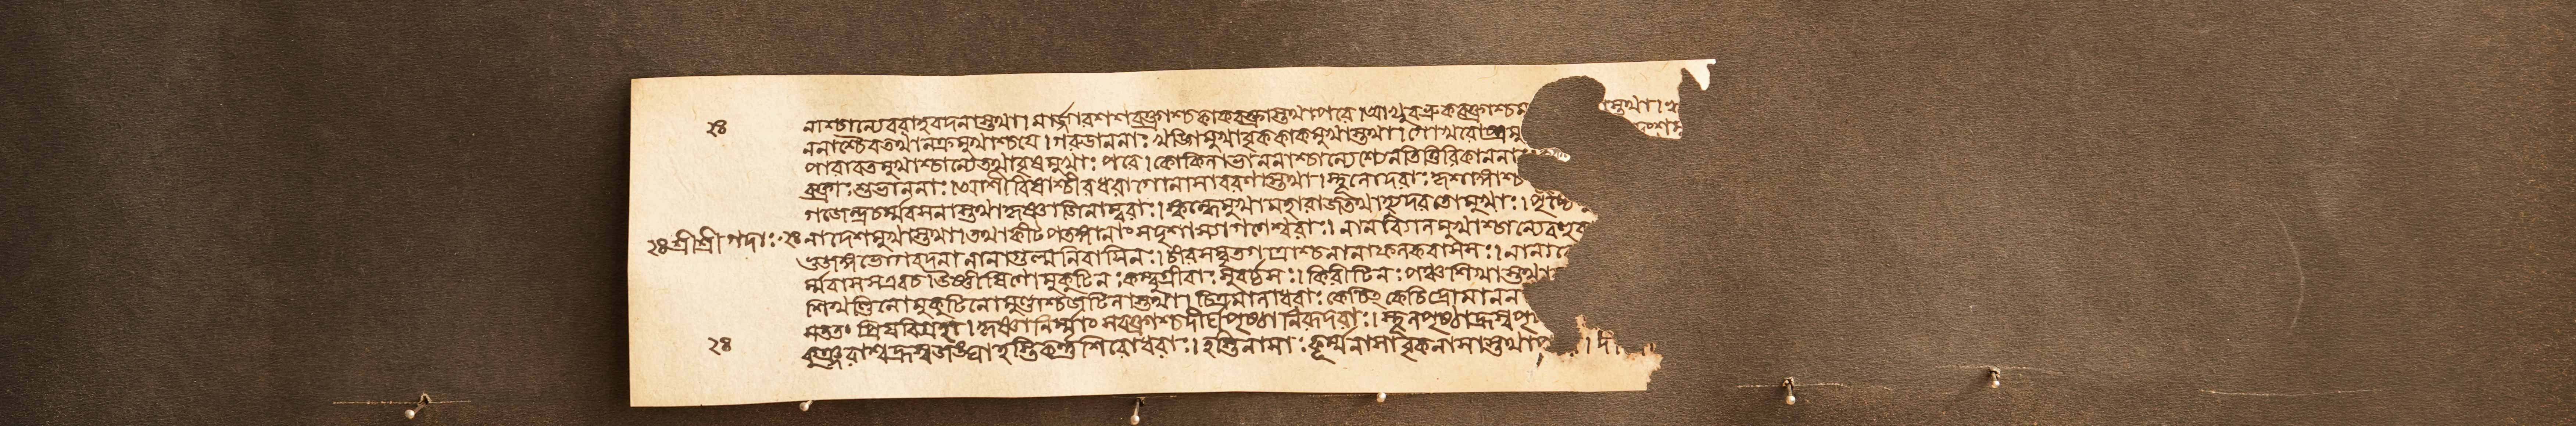 ২৪ নাশ্চান্যেবরাহবদনাস্তথা। মার্জ্জারশশবক্ত্রাশ্চকাকবক্ত্রাস্তথাপরে। আখুবভ্রুকবক্ত্রাশ্চম স্তথা।
ননাশ্চৈবতথানক্রমুখাশ্চযে। গরুডাননাঃ খড়্গিমুখাবৃককাকমুখাস্তথা। গোখরোষ্ট্রমু
পারাবতমুখাশ্চান্যেতথাবৃষমুখাঃ পরে। কোকিলাভাননাশ্চান্যেশ্যেনতিত্তিরিকাননাঃ
বক্ত্রাঃ শুভাননাঃ। আশীবিষাশ্চীরধরাগোনাসাবরণাস্তথা। স্থূলোদরাঃ কৃশাঙ্গাশ্চ
গজেন্দ্রচর্ম্মবসনাস্তথাকৃষ্ণাজিনাম্বরাঃ। স্কন্ধেমুখামহারাজতথাহ্যুদরতোমুখাঃ। পৃষ্ঠে
২৪ শ্রীশ্রীগদাঃ ২৪ নাদেশমুখাস্তথা। তথাকীটপতঙ্গানাং সদৃশাস্যাগণেশ্বরাঃ। নানাবিগলমুখাশ্চান্যেবহুব
ভুজঙ্গভোগবদনানানাগুল্মনিবাসিনঃ। চীরসম্বৃতগাত্রাশ্চনানাফলকবাসসঃ। নানাবে
র্ম্মবাসসএবচ। উষ্ণীষিণোমুকুটিনঃ কম্বুগ্রীবাঃ সুবর্চ্চসঃ। কিরীটিনঃ পঞ্চশিখাস্তথা
শিখণ্ডিনোমুকুটিনোমুণ্ডাশ্চজটিলাস্তথা। চিত্রমালাধরাঃ কেচিৎ কেচিদ্রোমানন
সততং প্রিয়বিগ্রহাঃ। কৃষ্ণানির্ম্মাংসবক্ত্রাশ্চদীর্ঘপৃষ্ঠানিরূদরাঃ। স্থূলপৃষ্ঠাহ্রস্বপৃ
২৪ কুঞ্জরাশ্বহ্রস্বজঙ্ঘাহস্তিকর্ণশিরোধরাঃ। হস্তিনাসাঃ কূর্ম্মনাসাবৃকনাসাস্তথাপ । দী